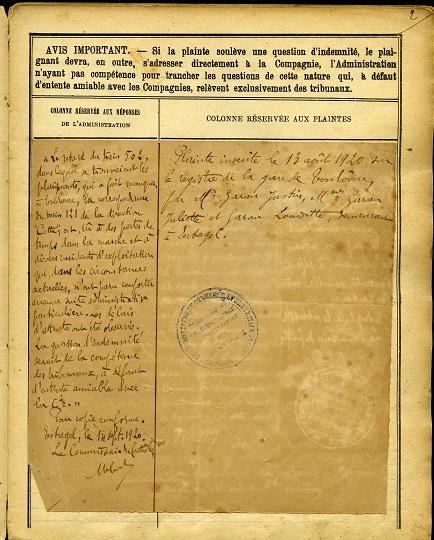 2
AVIS IMPORTANT. — Si la plainte soulève une question d'indemnité, le plai-
gnant devra, en outre, s'adresser directement à la Compagnie, l'Administration
n'ayant pas compétence pour trancher les questions de cette nature qui, à défaut
d'entente amiable avec les Compagnies, relèvent exclusivement des tribunaux.
COLONNE RÉSERVÉE AUX RÉPONSES
DE L'ADMINISTRATION
COLONNE RÉSERVÉE AUX PLAINTES
« Le retard du train 502,
dans lequel se trouvaient les
plaignants, qui a fait manquer,
à Toulouse, la correspondance
du train 121 de la direction
Cette, est dû à des pertes de
temps dans la marche et à
divers incidents d'exploitation
qui, dans les circonstances
actuelles, n'ont paru comporter
aucune suite administrative
particulière. Les délais
d'attente ont été observés.
La question d'indemnité
serait de la compétence
des tribunaux, à défaut
d'entente amiable avec
la Cie. »
Pour copie conforme.
Estagel, le 14 Sept. 1920.
Le Commissaire
Plainte inscrite le 13 août 1920 sur
le registre de la gare de Toulouse,
par Mr Garau Justin, Mmes Garau
Juliette et Garau demeurant
à Estagel.